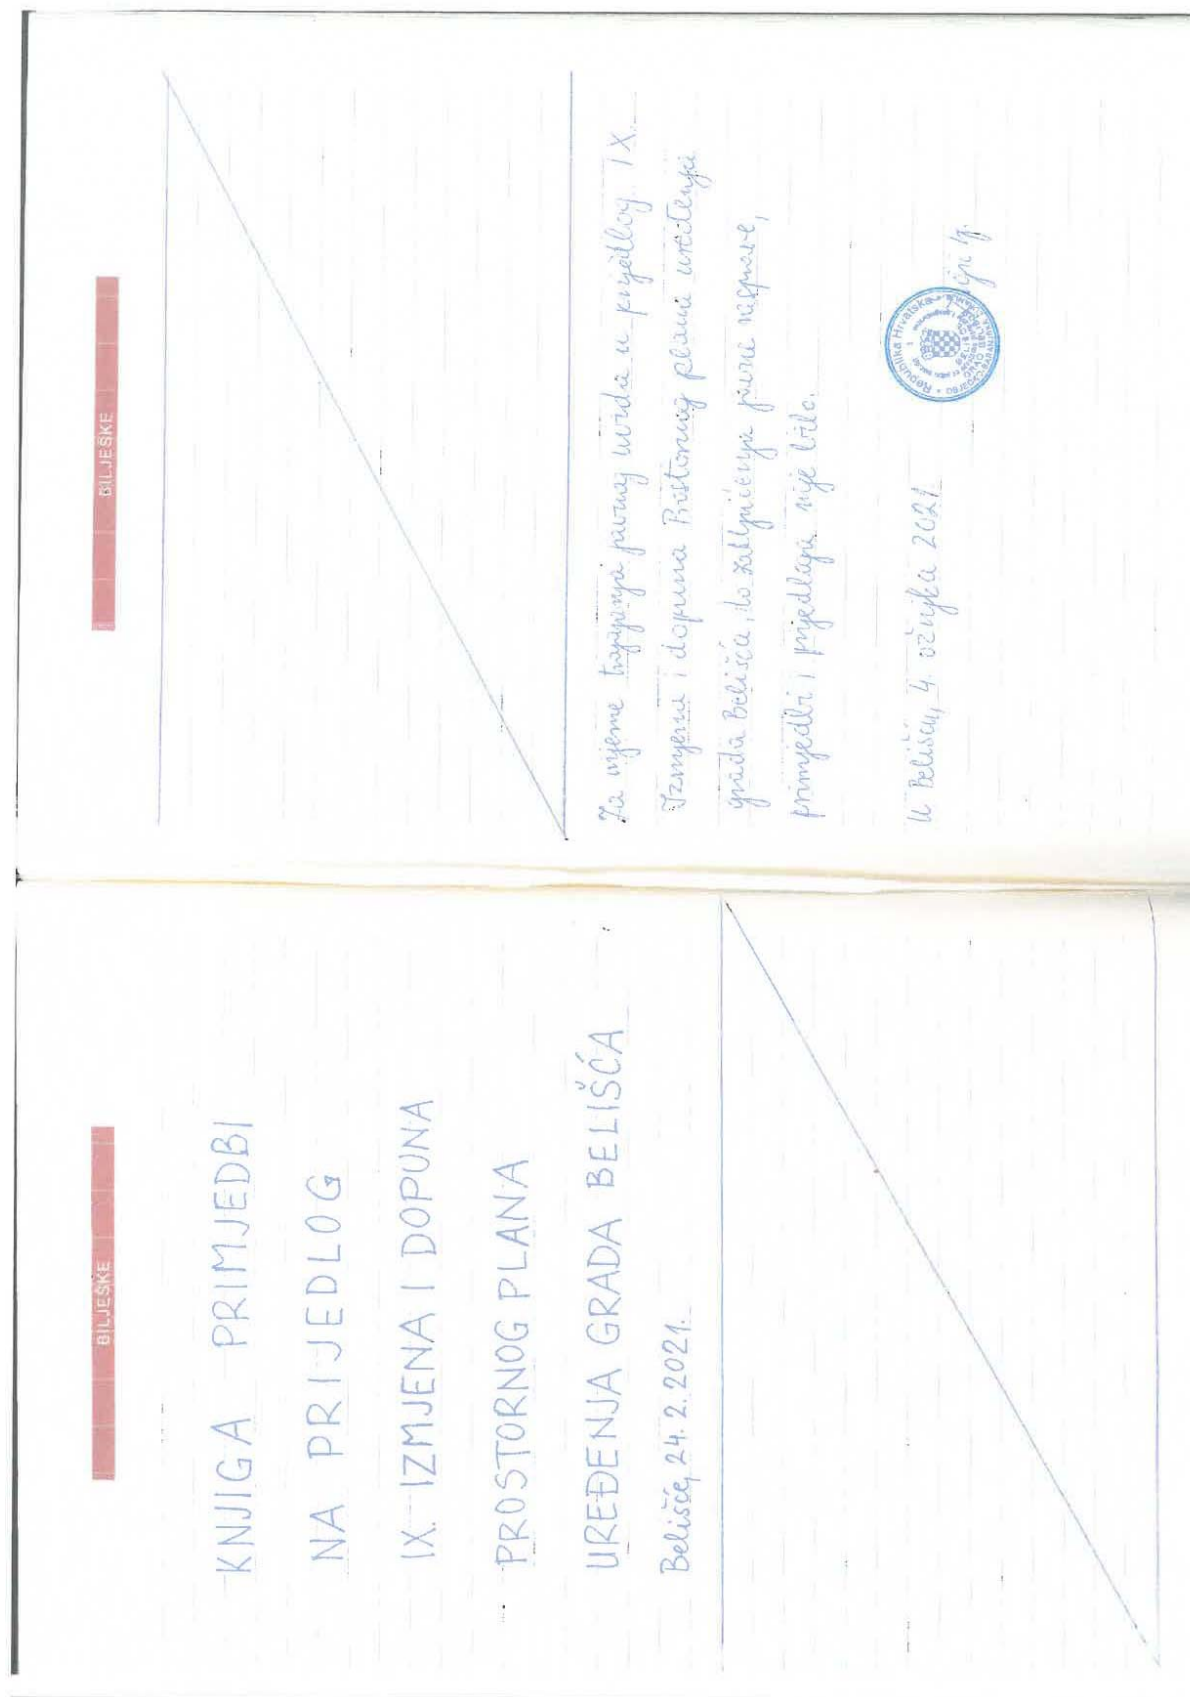 BILJEŠKE
KNJIGA PRIMJEDBI
NA PRIJEDLOG
IX. IZMJENA I DOPUNA
PROSTORNOG PLANA
UREĐENJA GRADA BELIŠĆA
Belišće, 24. 2. 2021.
BILJEŠKE
Za vrijeme trajanja javnog uvida u prijedlog IX.
Izmjena i dopuna Prostornog plana uređenja
grada Belišća, do zaključenja javne rasprave,
primjedbi i prijedloga nije bilo.
U Belišću, 4. ožujka 2021.
Republika Hrvatska